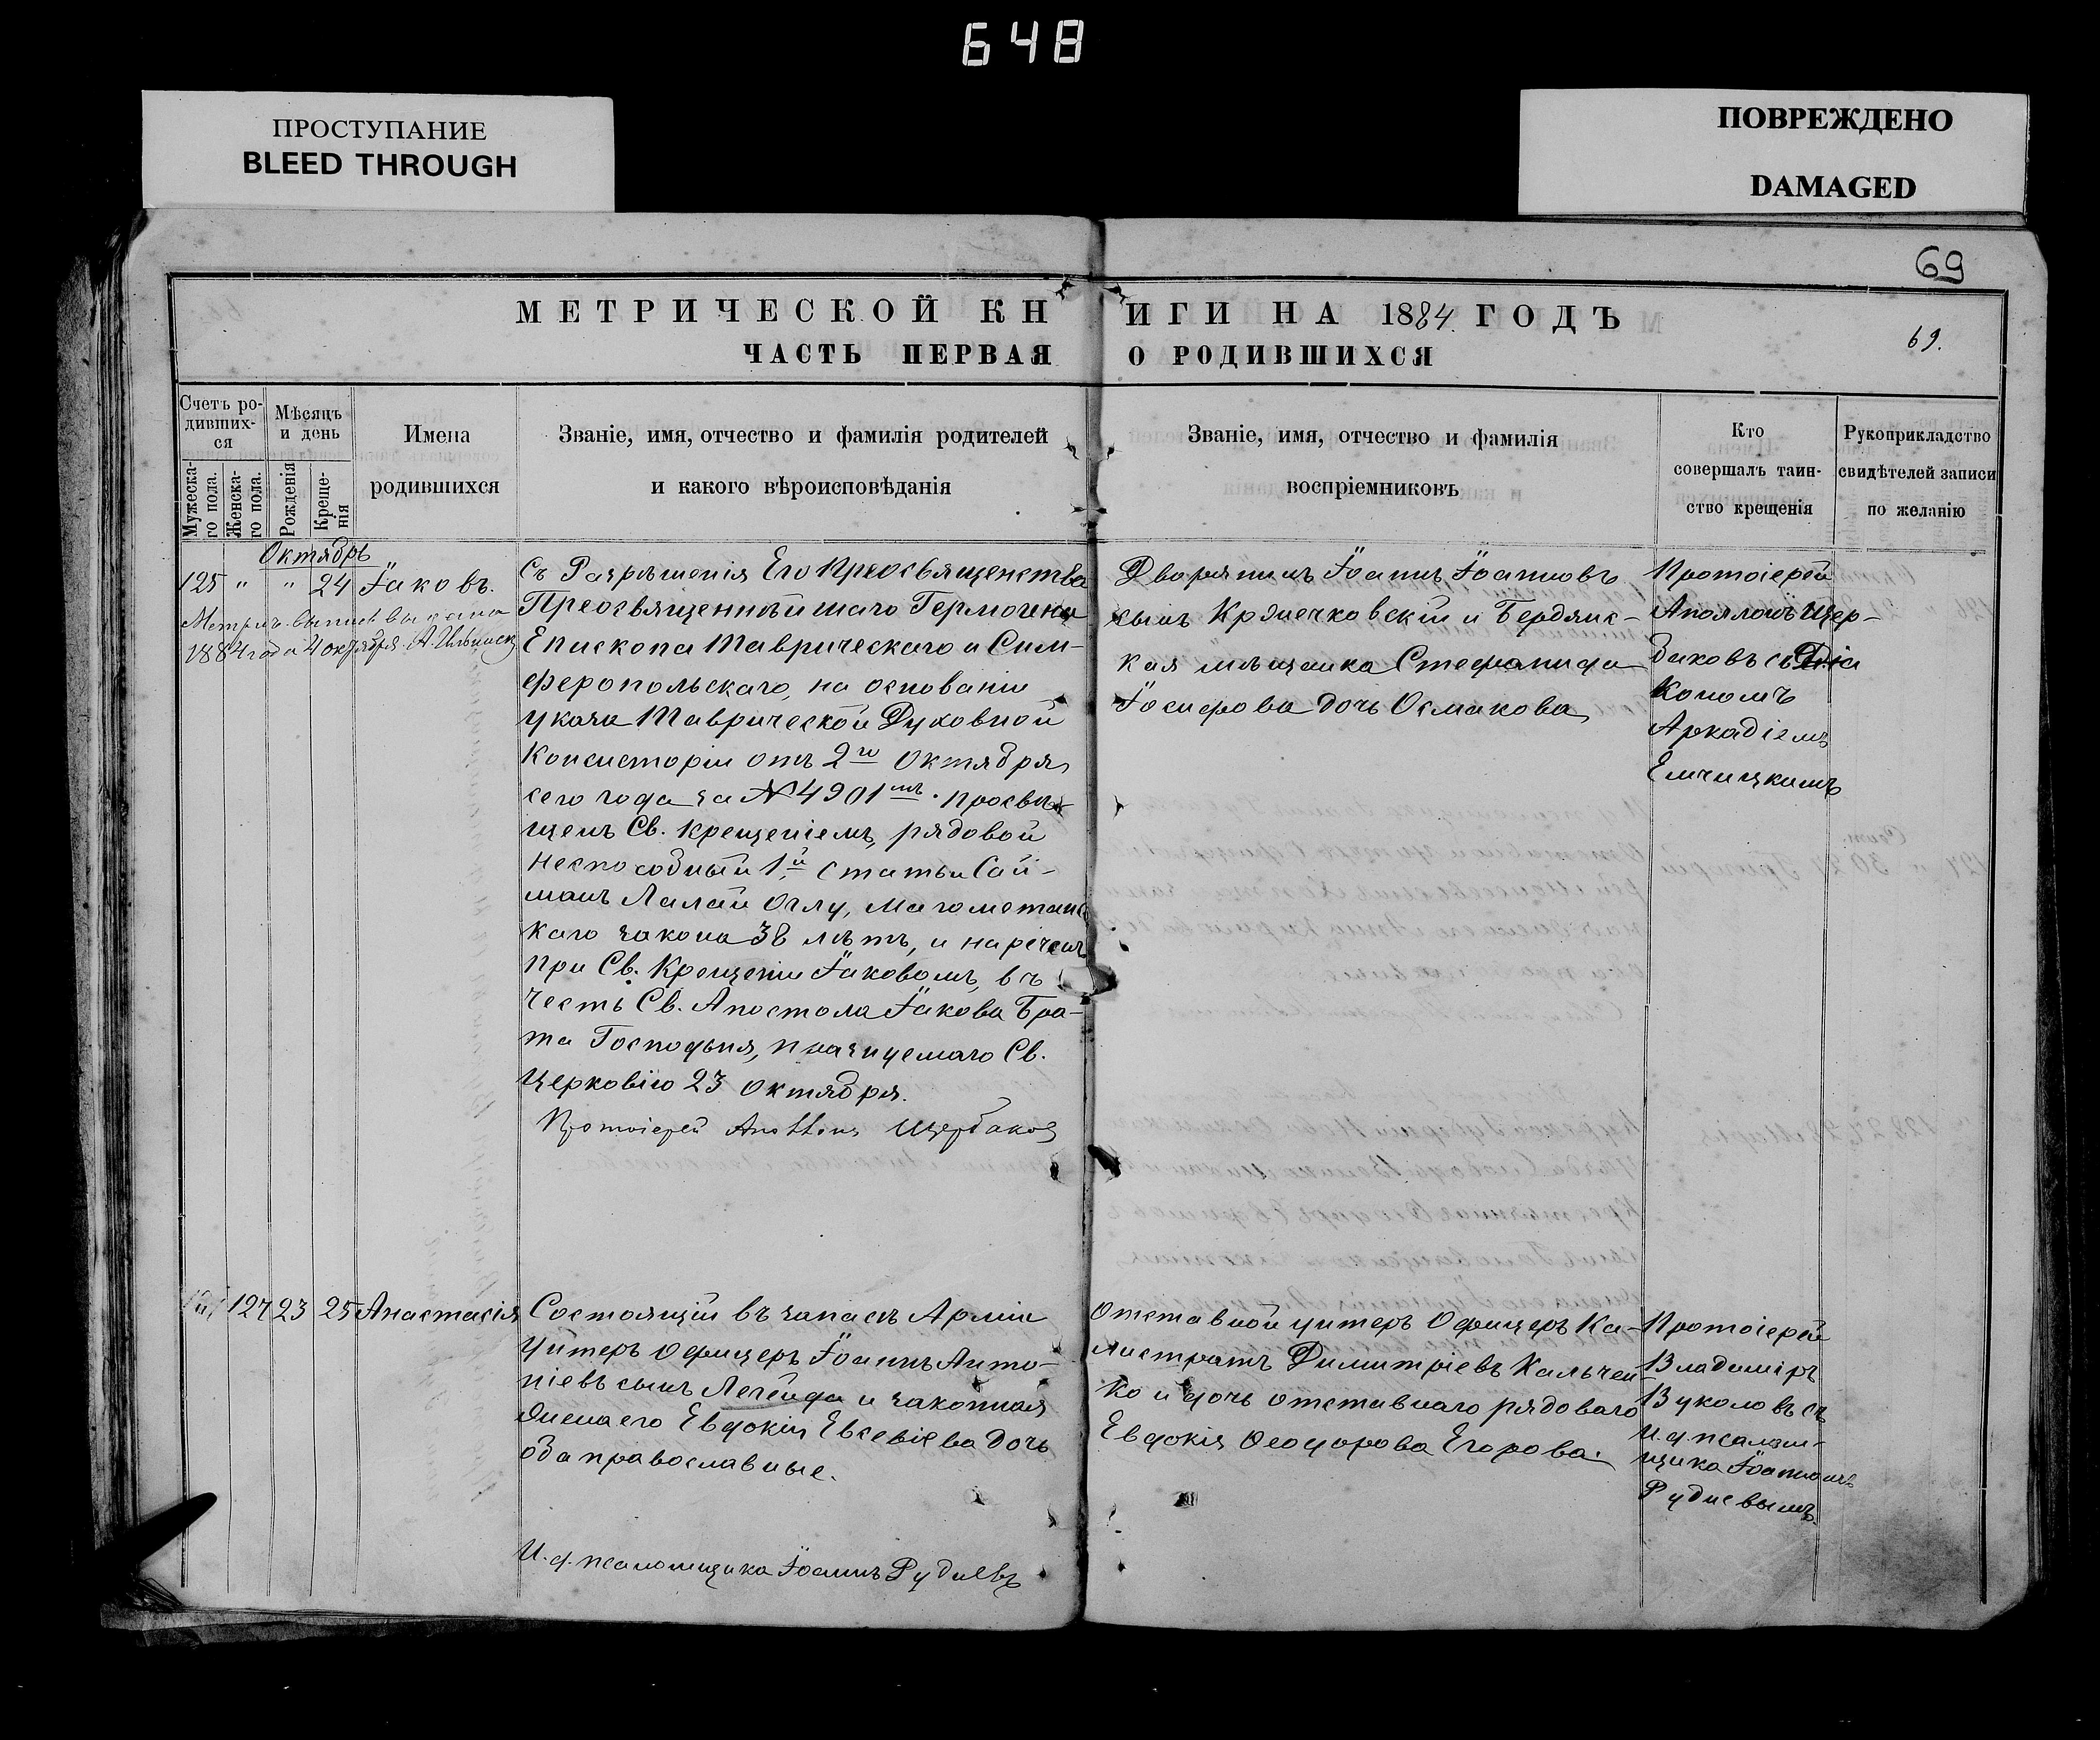 648
ПРОСТУПАНИЕ
BLEED THROUGH
ПОВРЕЖДЕНО
DAMAGED
69
МЕТРИЧЕСКОЙ КНИГИ НА 1884 ГОДЪ
ЧАСТЬ ПЕРВАЯ О РОДИВШИХСЯ
69.
Счетъ ро-
дивших-
ся
Мужеска-
го пола.
Женска-
го пола.
Мѣсяцъ
и день
Рожденія
Креще-
нія
Имена
родившихся
Званіе, имя, отчество и фамилія родителей
и какого вѣроисповѣданія
Званіе, имя, отчество и фамилія
воспріемниковъ
Кто
совершалъ таин-
ство крещенія
Рукоприкладство
свидѣтелей записи
по желанію
Октябрь
125 " " 24 Іаковъ.
Метрич. выпись выдана
1884 года
Съ Разрѣшенія Его Преосвященства
Преосвященнѣйшаго Гермогена
Епископа Таврическаго и Сим-
феропольскаго, на основаніи
указа Таврической Духовной
Консисторіи отъ 2го Октября
сего года за № 4901мъ. просвѣ-
щенъ Св. крещеніемъ, рядовой
неспособный 1й статьи Сай-
манъ Лалай Оглу, магометанс
каго закона 38 лѣтъ, и нареченъ
при Св. Крещеніи Іаковомъ, въ
честь Св. Апостола Іакова Бра-
та Господня, празнуемаго Св.
Церковію 23 Октября.
Протоіерей Аполлонъ Щербаковъ
Дворянинъ Іоаннъ Іоанновъ
сынъ Крыжечковскій и Бердянс-
кая мѣщанка Стефанида
Іосифова дочь Осмакова
Протоіерей
Аполлонъ Щер-
баковъ съ Діа
кономъ
Аркадіемъ
Емчицкимъ
127 23 25 Анастасія
Состоящій въ запасѣ Арміи
Унтеръ Офицеръ Іоаннъ Анто-
ніевъ сынъ Легейда и законная
жена его Евдокія Евсевіева дочь
оба православные.
И. д. псаломщика Іоаннъ Рудневъ
Отставной унтеръ Офицеръ Ка-
листратъ Димитріевъ Кальчен
ко и дочь отставнаго рядоваго
Евдокія Ѳеодорова Егорова.
Протоіерей
Владиміръ
Вуколовъ съ
И. д. псалом-
щика Іоанномъ
Рудневымъ.